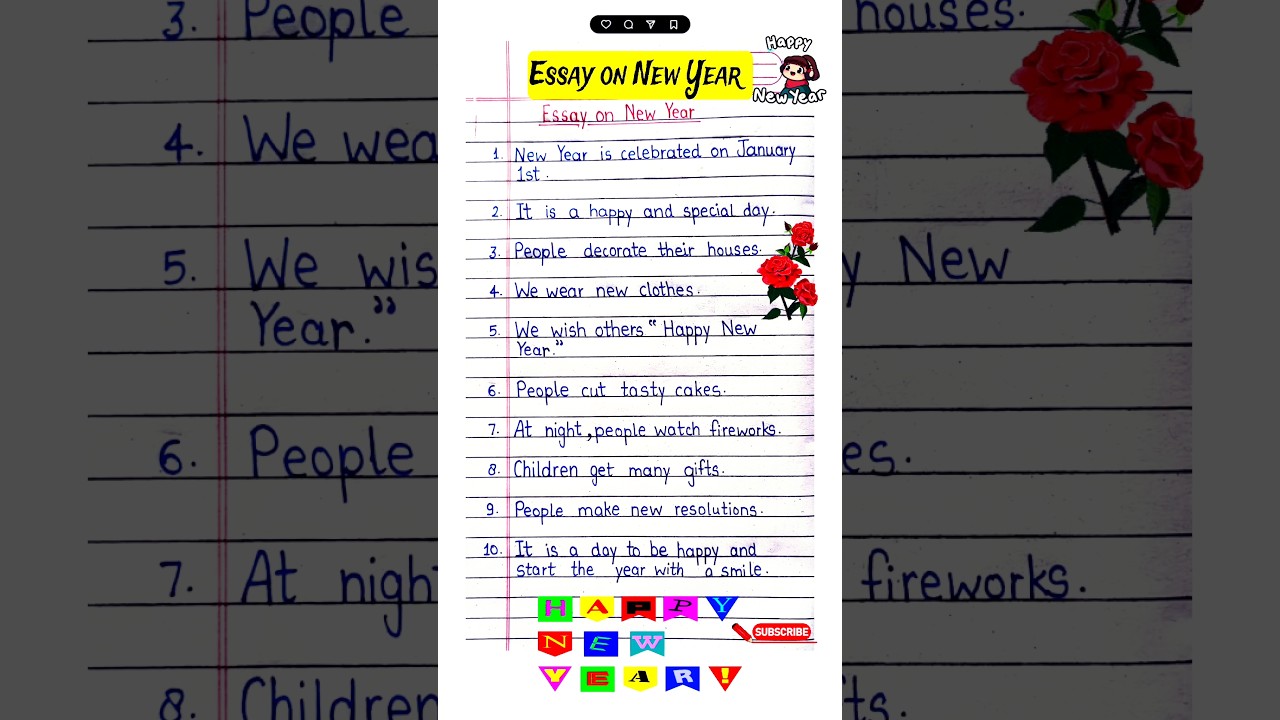 3. People
4. We wea
5. We wis
Year.”
6. People
7. At nigh
8. Children
ESSAY ON NEW YEAR
Happy
New Year
Essay on New Year
1. New Year is celebrated on January
1st.
2. It is a happy and special day.
3. People decorate their houses.
4. We wear new clothes.
5. We wish others “Happy New
Year.”
6. People cut tasty cakes.
7. At night, people watch fireworks.
8. Children get many gifts.
9. People make new resolutions.
10. It is a day to be happy and
start the year with a smile.
HAPPY
NEW
SUBSCRIBE
YEAR!
houses.
y New
es.
fireworks.
ts.